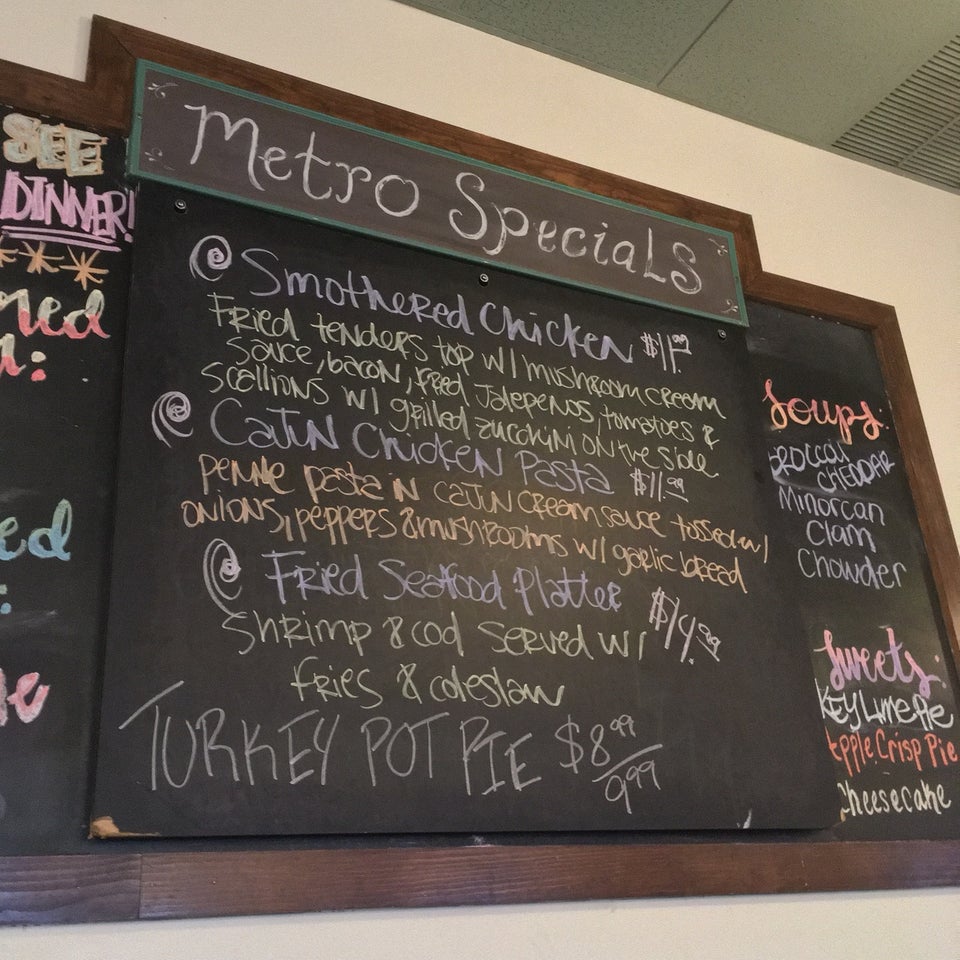 SEE
DINNER!
Metro Specials
@ Smothered Chicken $11.99
Fried tenders top w/ mushroom cream
sauce, bacon, fried Jalepenos, tomatoes &
scallions w/ grilled zucchini on the side
@ Cajun Chicken Pasta $11.99
penne pasta in cajun cream sauce tossed w/
onions, peppers & mushrooms w/ garlic bread
@ Fried Seafood Platter $14.99
Shrimp & cod served w/
fries & coleslaw
TURKEY POT PIE $8.99/9.99
Soups:
BROCCOLI
CHEDDAR
Minorcan
Clam
Chowder
Sweets:
KEY Lime Pie
Apple Crisp Pie
Cheesecake